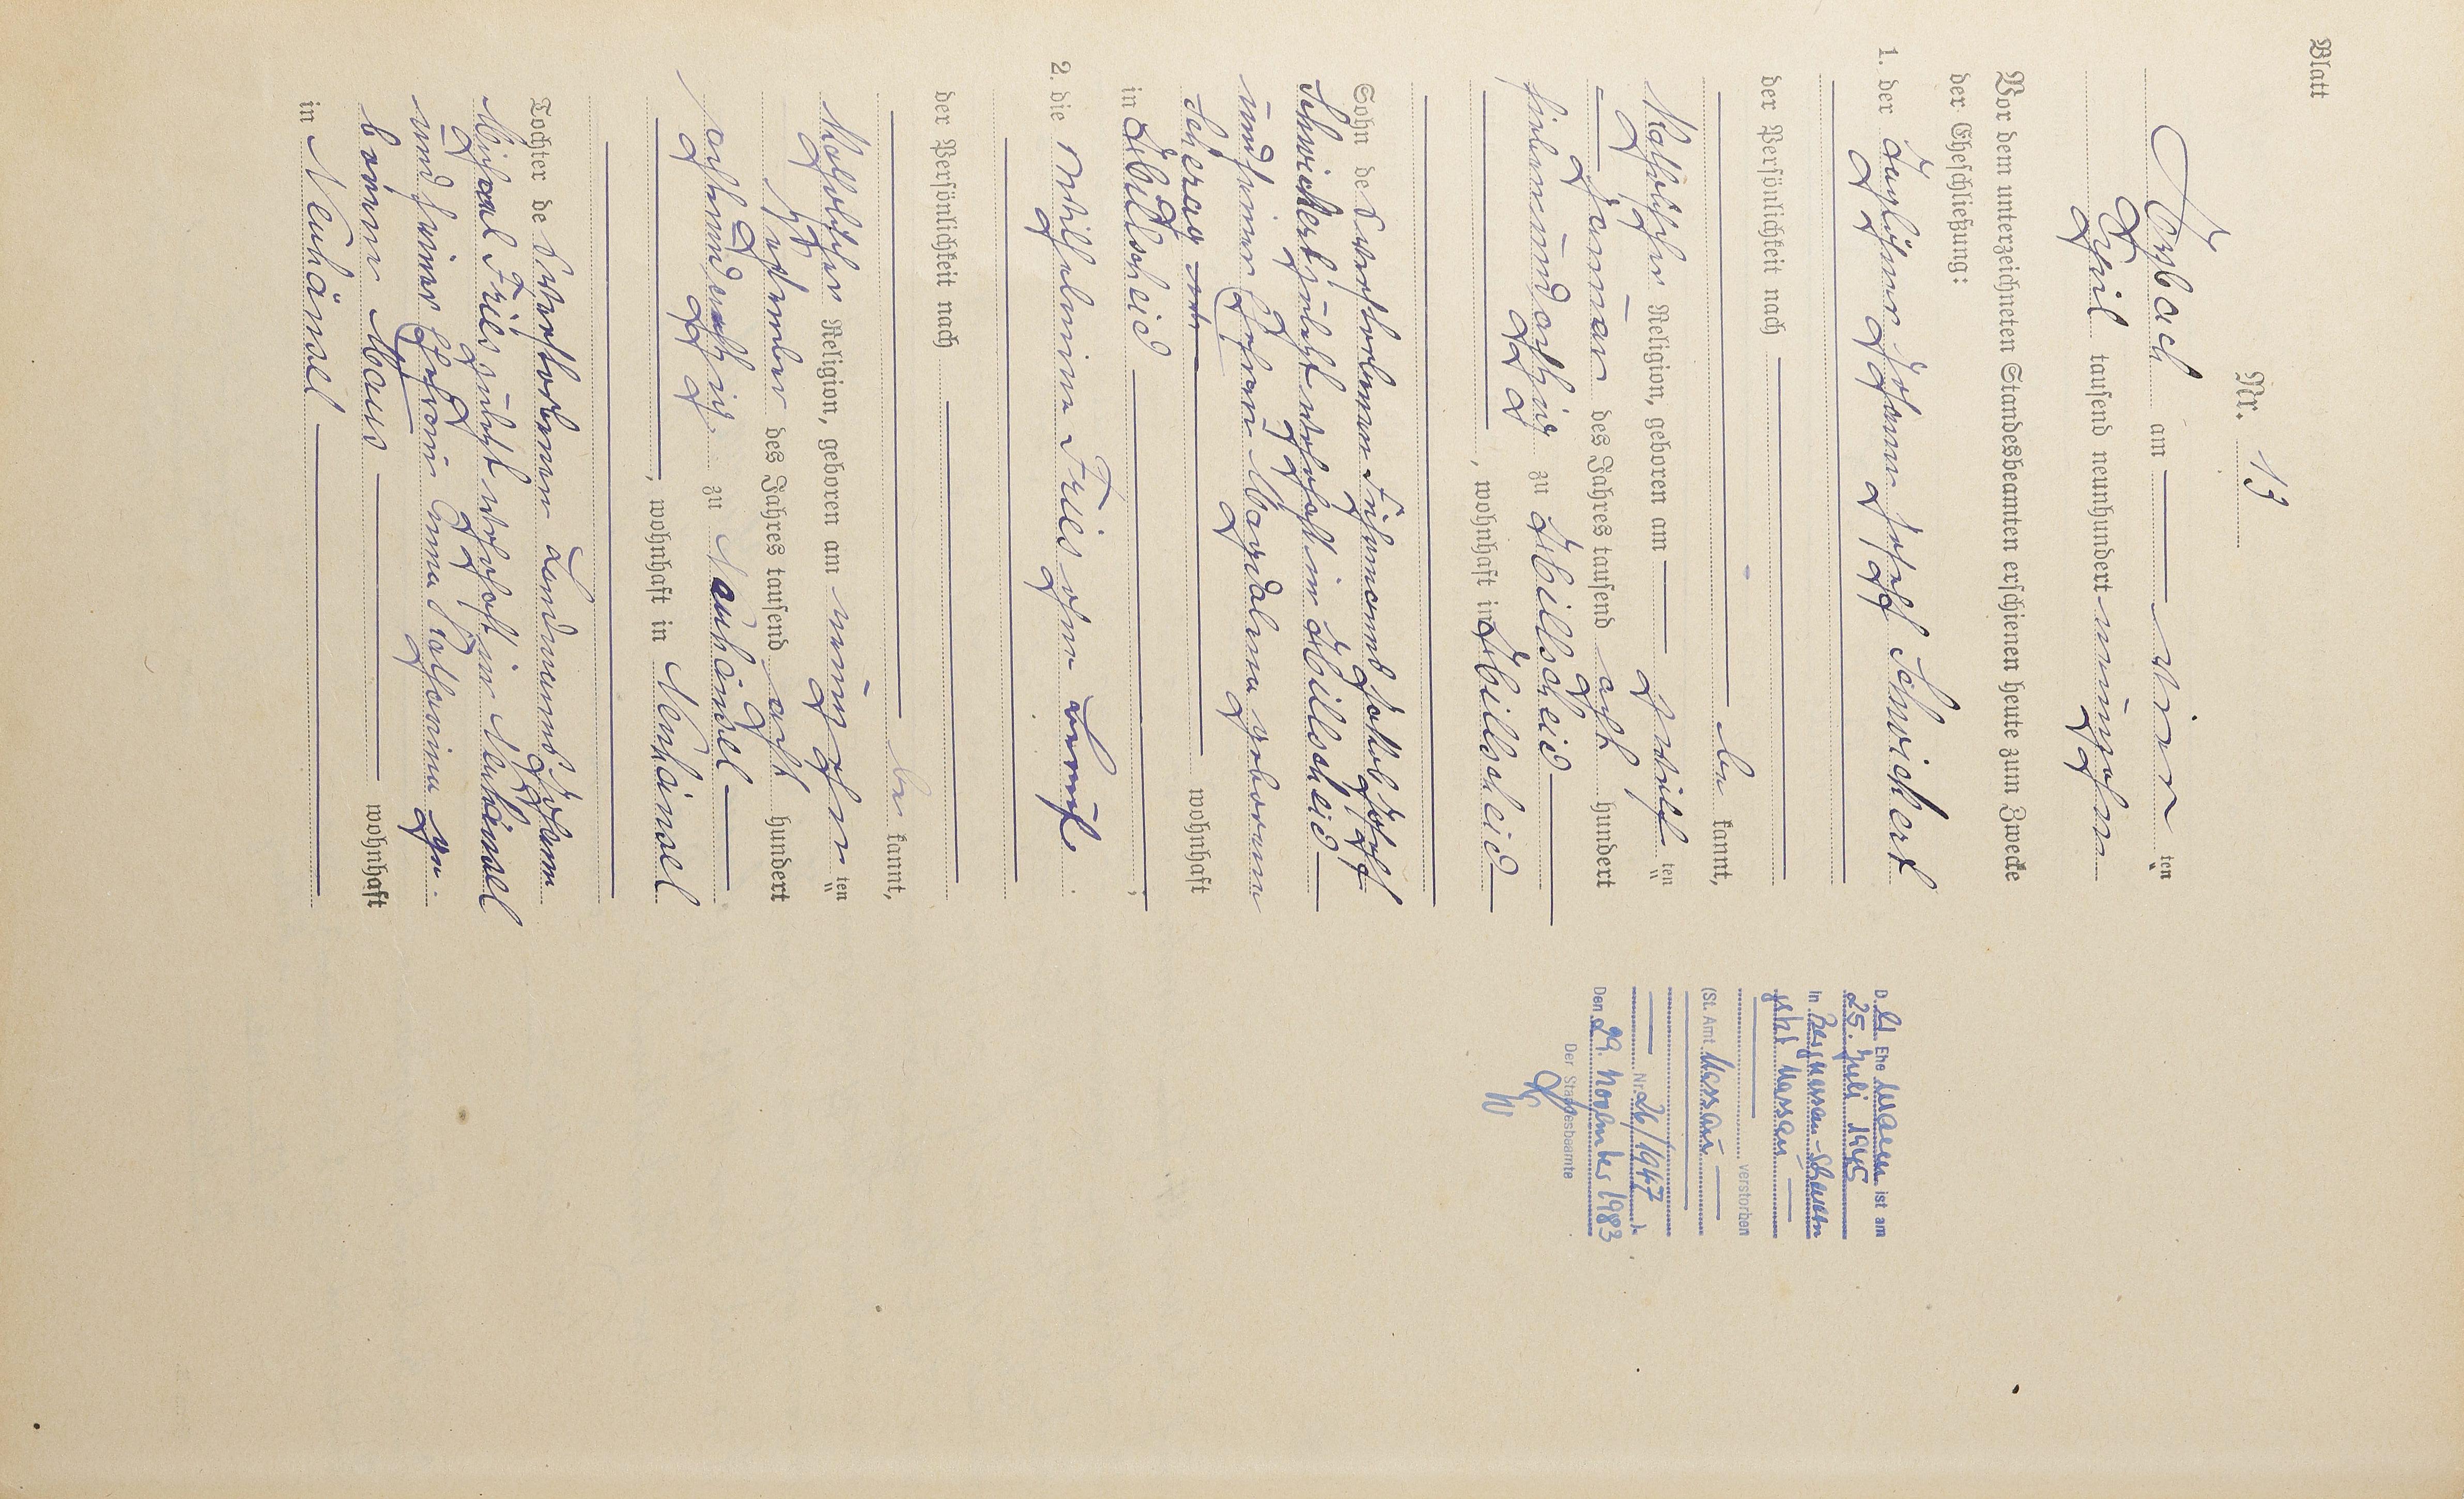 Blatt
Nr. 13
Horbach am vier ten
April tausend neunhundert neunzehn
Vor dem unterzeichneten Standesbeamten erschienen heute zum Zwecke
der Eheschließung:
1. der Taglöhner Johann Joseph Schwickert
der Persönlichkeit nach
be kannt,
Katholischer Religion, geboren am zwölf ten
Januar des Jahres tausend acht hundert
siebenundachtzig zu Hillscheid
, wohnhaft in Hillscheid
Sohn des verstorbenen Fuhrmann Jakob Joseph
Schwickert zuletzt wohnhaft in Hillscheid
und seiner Ehefrau Magdalena geborene
Scherer wohnhaft
in Hillscheid ;
2. die Wilhelmine Fries ohne Beruf
der Persönlichkeit nach
be kannt,
Katholischer Religion, geboren am neunzehn ten
September des Jahres tausend acht hundert
achtundachtzig zu Neuhäusel
, wohnhaft in Neuhäusel
Tochter des verstorbenen Landmann Johann
Michael Fries zuletzt wohnhaft in Neuhäusel
und seiner Ehefrau Anna Katharina ge-
borene Maus wohnhaft
in Neuhäusel
D. Ehemann ist am
25. Juli 1945
in Bergnassau-Scheuern
jetzt Nassau
verstorben
(St. Amt Nassau
Nr. 26/1947 ).
Den 29. November 1983
Der Standesbeamte